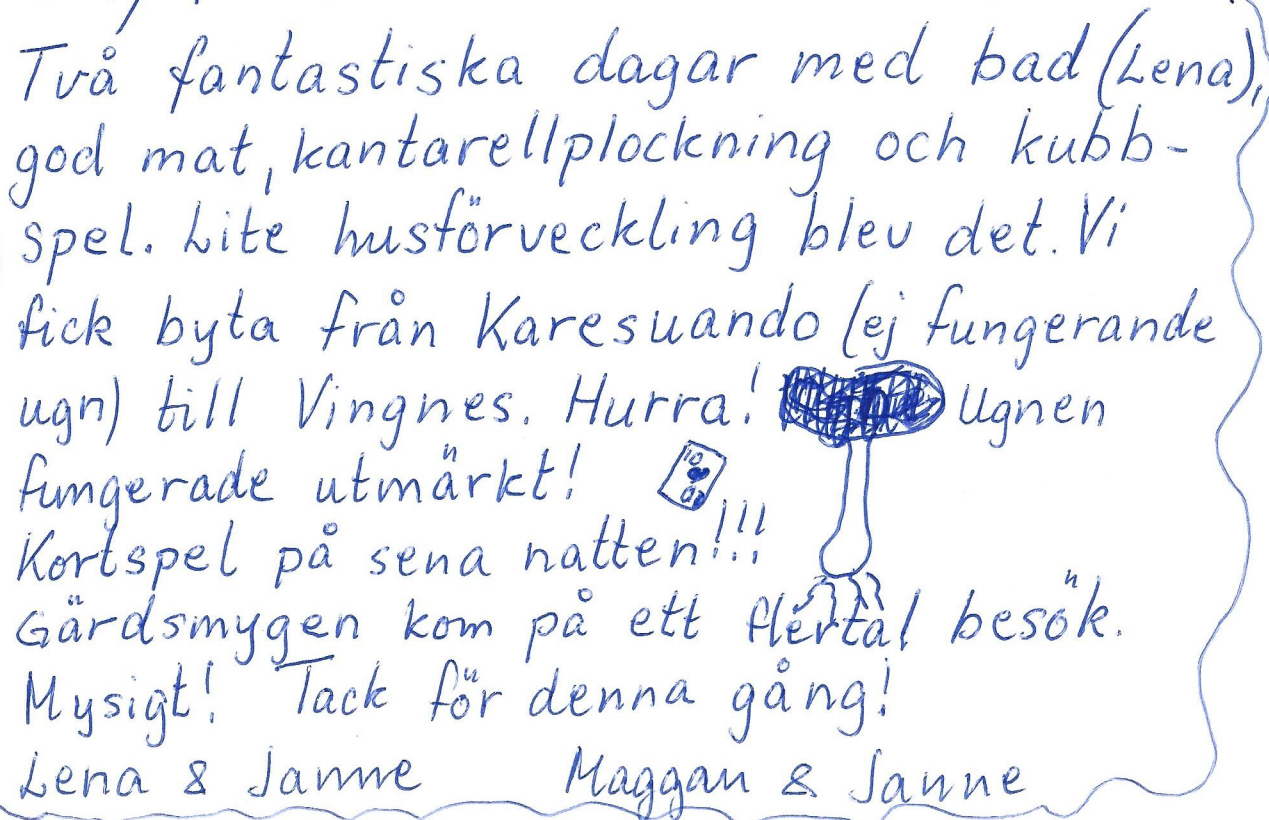 Två fantastiska dagar med bad (Lena),
god mat, kantarellplockning och kubb-
spel. Lite husförveckling blev det. Vi
fick byta från Karesuando (ej fungerande
ugn) till Vingnes. Hurra! Ugnen
fungerade utmärkt! 10 10
Kortspel på sena natten!!!
Gärdsmygen kom på ett flertal besök.
Mysigt! Tack för denna gång!
Lena & Janne Maggan & Janne